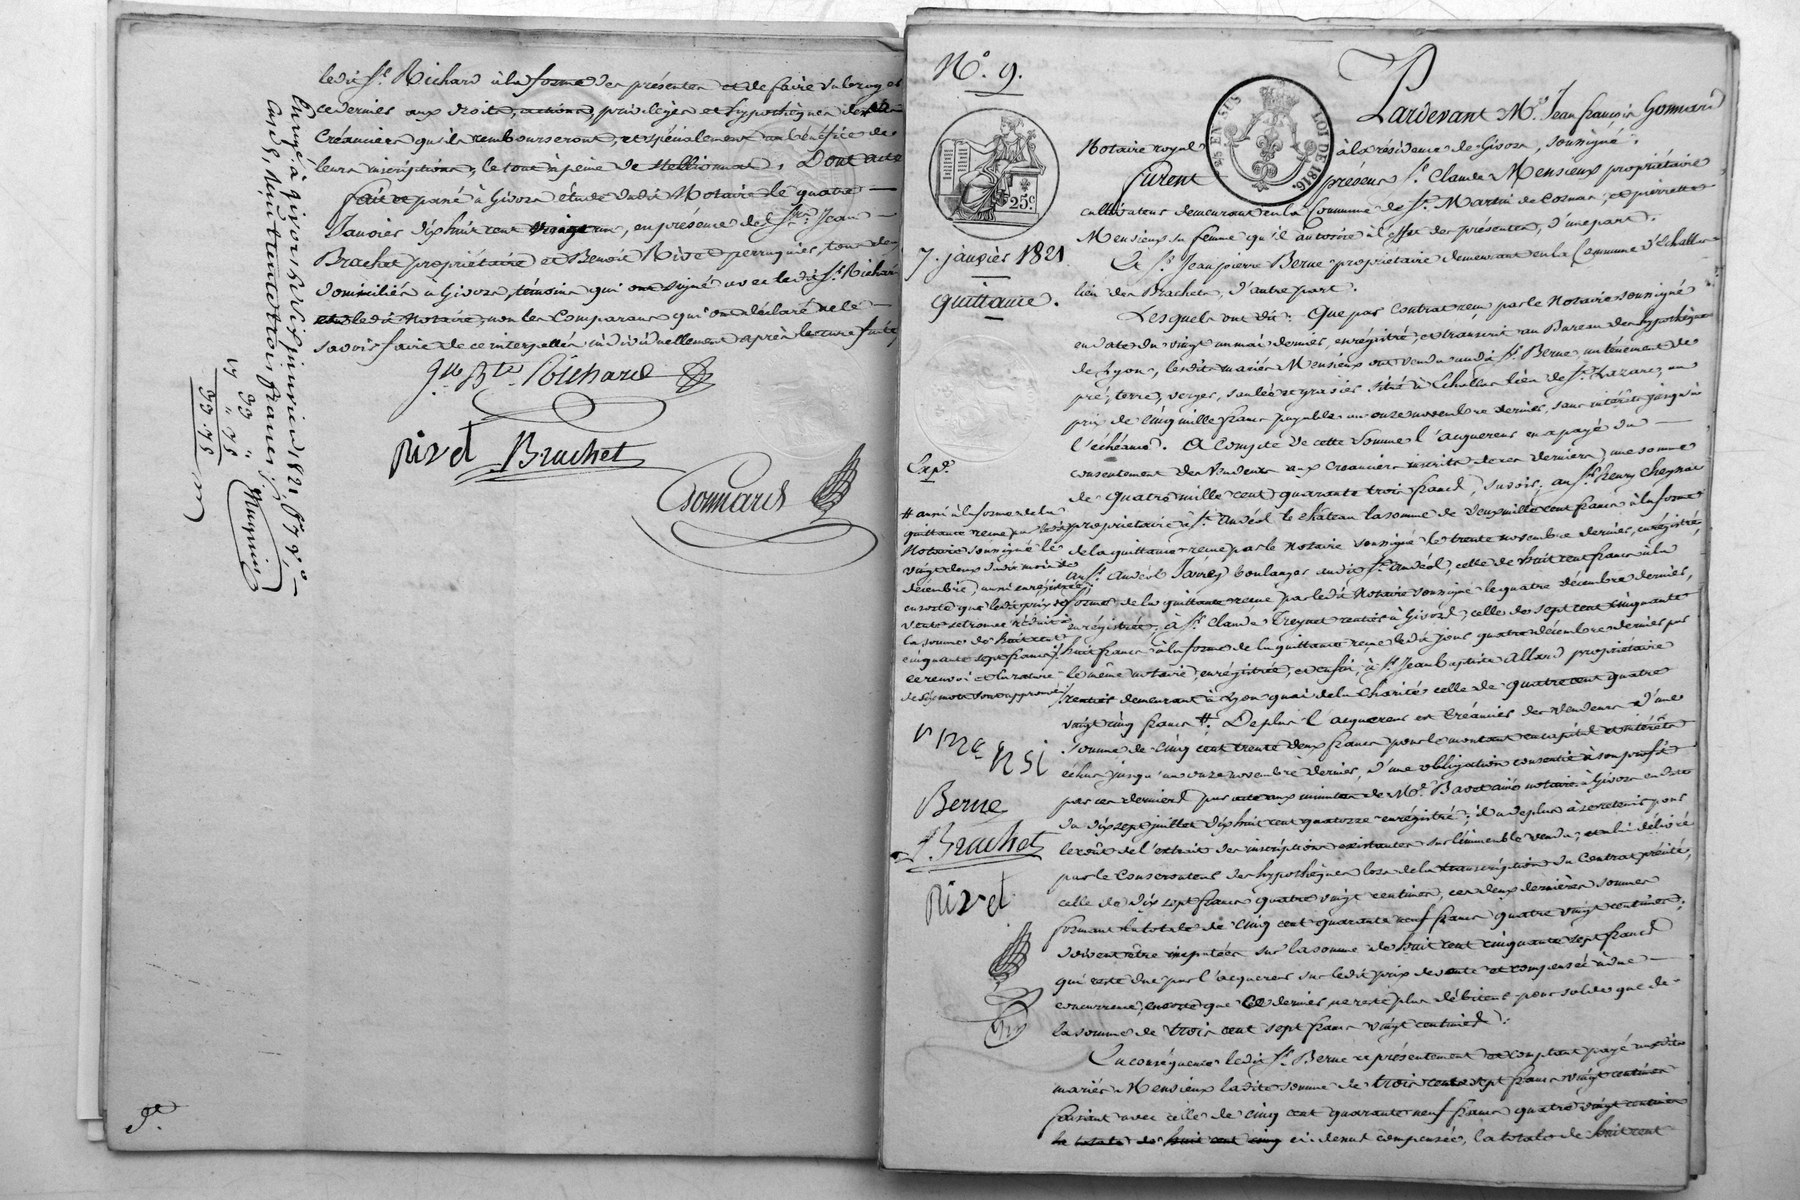 ledit Sr. Richard à la forme des présentes et de faire subroger
ce dernier aux droits, actions, privilèges et hypothèques des
Créanciers qu'ils rembourseront, et spécialement au bénéfice de
leurs inscriptions, le tout à peine de stellionat. Dont acte
fait et passé à Givors étude dudit Notaire le quatre
Janvier dix huit cent vingt un, en présence de Srs. Jean
Brachet propriétaire et Benoit Rivet perruquier, tous deux
domiciliés à Givors, témoins qui ont signé avec ledit Sr. Richard
et ledit Notaire, non les Comparans qui ont déclaré ne le
savoir faire de ce interpellés individuellement après lecture faite
Richard
Rivet Brachet
Gonnard
Enregé. à Givors le dix janvier 1821, fo. 78 Vo.
trente trois francs
99 "
99 . 75
N°. 9.
EN SUS
LOI DE 1816
25c
7. janvier 1821
quittance.
Pardevant Me. Jean françois Gonnard
Notaire royal à la résidence de Givors, soussigné;
furent présens Sr. Claude Mensieux propriétaire
cultivateur demeurant en la Commune de St. Martin de Cornas, et pierrette
Mensieux sa femme qu'il autorise à l'effet des présentes, d'une part.
Et Sr. Jean pierre Berne propriétaire demeurant en la Commune d'Echallas
lieu des Brachets, d'autre part.
Lesquels ont dit: Que par contrat reçu par le Notaire soussigné
en date du vingt un mai dernier, enregistré, et transcrit au Bureau des hypothèques
de Lyon, lesdits mariés Mensieux ont vendu audit Sr. Berne, un ténement de
pré, terre, verger, saulée et graviers situé à Echallas lieu de St. Lazare, au
prix de cinq mille francs payable au onze novembre dernier, sans intérêts jusqu'à
l'échéance. A compte de cette somme l'acquéreur en a payé du
consentement des Vendeurs aux créanciers inscrits de ces derniers, une somme
de quatre mille cent quarante trois francs, savoir: au Sr. henry Cheynac
propriétaire à St. Andéol le château la somme de deux mille cent francs à la forme
de la quittance reçue par le Notaire soussigné le trente novembre dernier, enregistré,
au Sr. Andéol Javrey boulanger audit St. Andéol, celle de huit cent francs à la
forme de la quittance reçue par ledit Notaire soussigné le quatre décembre dernier,
enregistrée; à Sr. Claude Treynet rentier à Givors, celle de sept cent cinquante
huit francs à la forme de la quittance reçue ledit jour quatre décembre dernier par
le même notaire, enregistrée, et enfin, à Sr. Jean baptiste Allard propriétaire
rentier demeurant à Lyon quai de la Charité celle de quatre cent quatre
vingt cinq francs #. De plus l'acquéreur est Créancier des vendeurs d'une
somme de cinq cent trente deux francs pour le montant en capital et intérêts
échus jusqu'au onze novembre dernier, d'une obligation consentie à son profit
par ces derniers par acte aux minutes de Me. Bavet aîné notaire à Givors en date
du dix sept juillet dix huit cent quatorze enregistré; il a de plus à se retenir pour
le coût de l'extrait des inscriptions existantes sur l'immeuble vendu, et à lui délivré
par le Conservateur des hypothèques lors de la transcription du Contrat précité,
celle de dix sept francs quatre vingt centimes, ces deux dernières sommes
formant la totale de cinq cent quarante neuf francs quatre vingt centimes;
doivent être imputées sur la somme de huit cent cinquante sept francs
qui reste due par l'acquéreur sur ledit prix de vente et compensée à due
concurrence, ensorte que ce dernier ne reste plus débiteur pour solde que de
la somme de trois cent sept francs vingt centimes.
En conséquence ledit Sr. Berne a présentement et comptant payé auxdits
mariés Mensieux ladite somme de trois cents sept francs vingt centimes
faisant avec celle de cinq cent quarante neuf francs quatre vingt centimes
la totale de huit cent cinq ci devant compensée, la totale de huit cent
Expé.
# aussi à la forme de la
quittance reçue par ledit
Notaire soussigné le
vingt deux dudit mois de
décembre, aussi enregistrée
ensorte que ledit prix de
vente se trouve réduit à
la somme de huit cent
cinquante sept francs
ce renvoi et la rature
de six mots sont approuvés
Berne
Brachet
Rivet